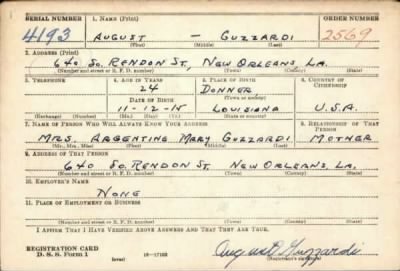 SERIAL NUMBER 1. NAME (Print) ORDER NUMBER
4193 AUGUST — GUZZARDI 2569
(First) (Middle) (Last)
2. ADDRESS (Print)
640 So. RENDON ST., NEW ORLEANS, LA.
(Number and street or R. F. D. number) (Town) (County) (State)
3. TELEPHONE 4. AGE IN YEARS 5. PLACE OF BIRTH 6. COUNTRY OF CITIZENSHIP
24 DONNER
DATE OF BIRTH (Town or county)
11-12-15 LOUISIANA U.S.A.
(Exchange) (Number) (Mo.) (Day) (Yr.) (State or country)
7. NAME OF PERSON WHO WILL ALWAYS KNOW YOUR ADDRESS 8. RELATIONSHIP OF THAT PERSON
MRS. ARGENTINE MARY GUZZARDI MOTHER
(Mr., Mrs., Miss) (First) (Middle) (Last)
9. ADDRESS OF THAT PERSON
640 So. RENDON ST. NEW ORLEANS, LA.
(Number and street or R. F. D. number) (Town) (County) (State)
10. EMPLOYER'S NAME
NONE
11. PLACE OF EMPLOYMENT OR BUSINESS
(Number and street or R. F. D. number) (Town) (County) (State)
I AFFIRM THAT I HAVE VERIFIED ABOVE ANSWERS AND THAT THEY ARE TRUE.
REGISTRATION CARD
D. S. S. Form 1 (over) 16-17105 August Guzzardi
(Registrant's signature)